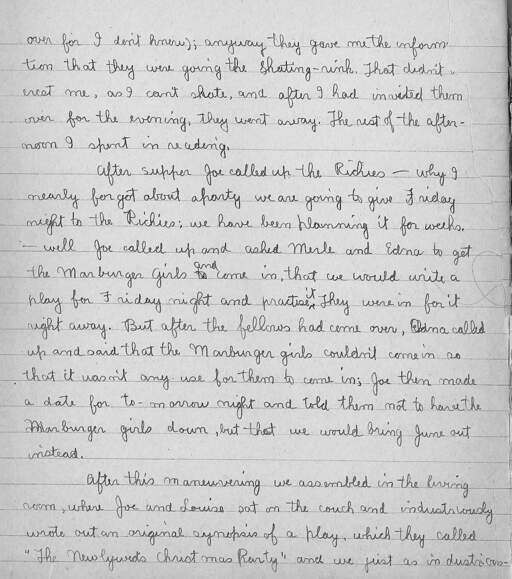 over for I don't know); anyway they gave me the inform-
tion that they were going the Skating-rink. That didn't
erest me, as I can't skate, and after I had invited them
over for the evening, they went away. The rest of the after-
noon I spent in reading.
After supper Joe called up the Richies — why I
nearly forgot about a party we are going to give Friday
night to the Richies; we have been planning it for weeks.
— well Joe called up and asked Merle and Edna to get
the Marburger girls and come in, that we would write a
play for Friday night and practise it. They were in for it
right away. But after the fellows had come over, Edna called
up and said that the Marburger girls couldn't come in so
that it wasn't any use for them to come in; Joe then made
a date for to-morrow night and told them not to have the
Marburger girls down, but that we would bring June out
instead.
After this maneuvering we assembled in the living
room, where Joe and Louise sat on the couch and industriously
wrote out an original synopsis of a play, which they called
"The Newlyweds Christmas Party" and we just as industrious-